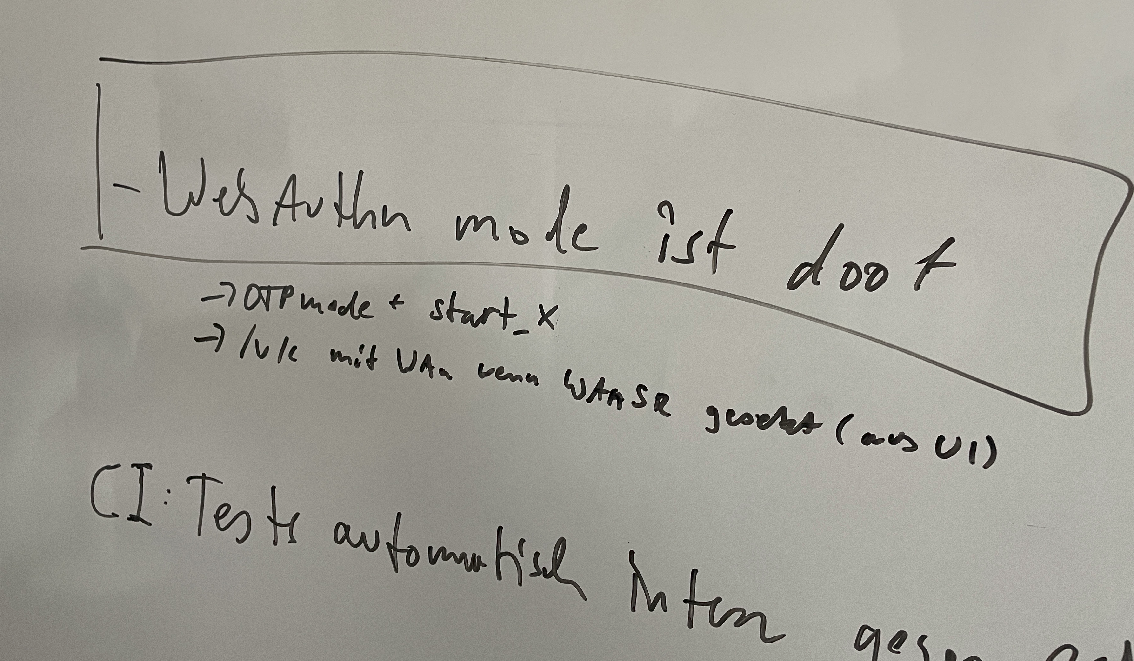 - WebAuthn mode ist doof
→ OTP mode + start_X
→ /v/c mit WAn wenn gesetzt (aus UI)
CI: Tests automatisch intern